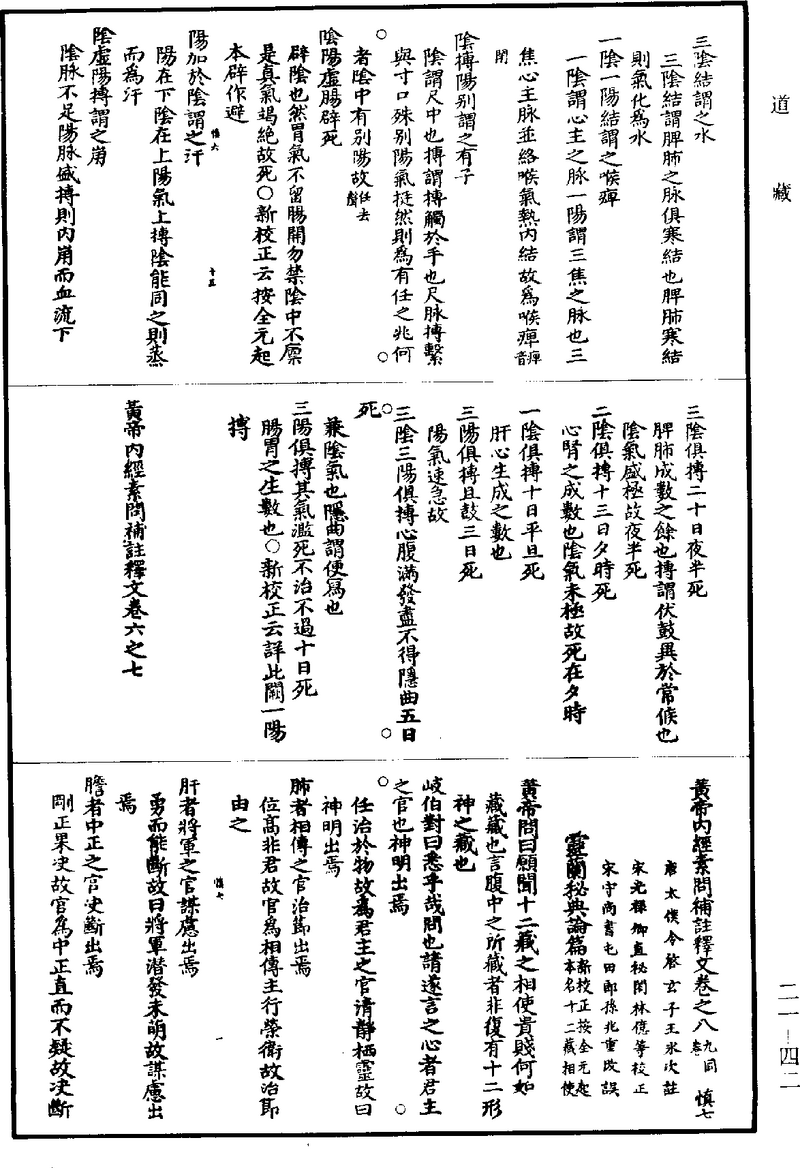 道藏
三陰結謂之水
三陰結謂脾肺之脉俱寒結也脾肺寒結
則氣化為水
一陰一陽結謂之喉痺
一陰謂心主之脉一陽謂三焦之脉也三
焦心主脉並絡喉氣熱内結故為喉痺痺音
閉
陰搏陽别謂之有子
陰謂尺中也搏謂搏觸於手也尺脉搏擊
與寸口殊别陽氣挺然則為有任之兆何
者陰中有别陽故任去聲
陰陽虛腸辟死
辟陰也然胃氣不留腸開勿禁陰中不廪
是真氣竭絶故死○新校正云按全元起
本辟作澼
陽加於陰謂之汗
慎六 十五
陽在下陰在上陽氣上搏陰能同之則蒸
而為汗
陰虛陽搏謂之崩
陰脉不足陽脉盛搏則内崩而血流下
三陰俱搏二十日夜半死
脾肺成數之餘也搏謂伏鼓異於常候也
陰氣盛極故夜半死
二陰俱搏十三日夕時死
心腎之成數也陰氣未極故死在夕時
一陰俱搏十日平旦死
肝心生成之數也
三陽俱搏且鼓三日死
陽氣速急故
三陰三陽俱搏心腹滿發盡不得隱曲五日
死
兼陰氣也隱曲謂便寫也
三陽俱搏其氣濫死不治不過十日死
腸胃之生數也○新校正云詳此闕一陽
搏
黃帝内經素問補註釋文卷六之七
黃帝内經素問補註釋文卷之八九同卷 慎七
唐太僕令啓玄子王氷次註
宋光祿卿直秘閣林億等校正
宋守尚書屯田郎孫兆重改誤
靈蘭秘典論篇新校正按全元起本名十二藏相使
黃帝問曰願聞十二藏之相使貴賤何如
藏藏也言腹中之所藏者非復有十二形
神之藏也
岐伯對曰悉乎哉問也請遂言之心者君主
之官也神明出焉
任治於物故為君主之官清靜栖靈故曰
神明出焉
肺者相傳之官治節出焉
位高非君故官為相傳主行榮衛故治節
由之
慎七 一
肝者將軍之官謀慮出焉
勇而能斷故曰將軍潜發未萌故謀慮出
焉
膽者中正之官决斷出焉
剛正果决故官為中正直而不疑故决斷
二一—四二